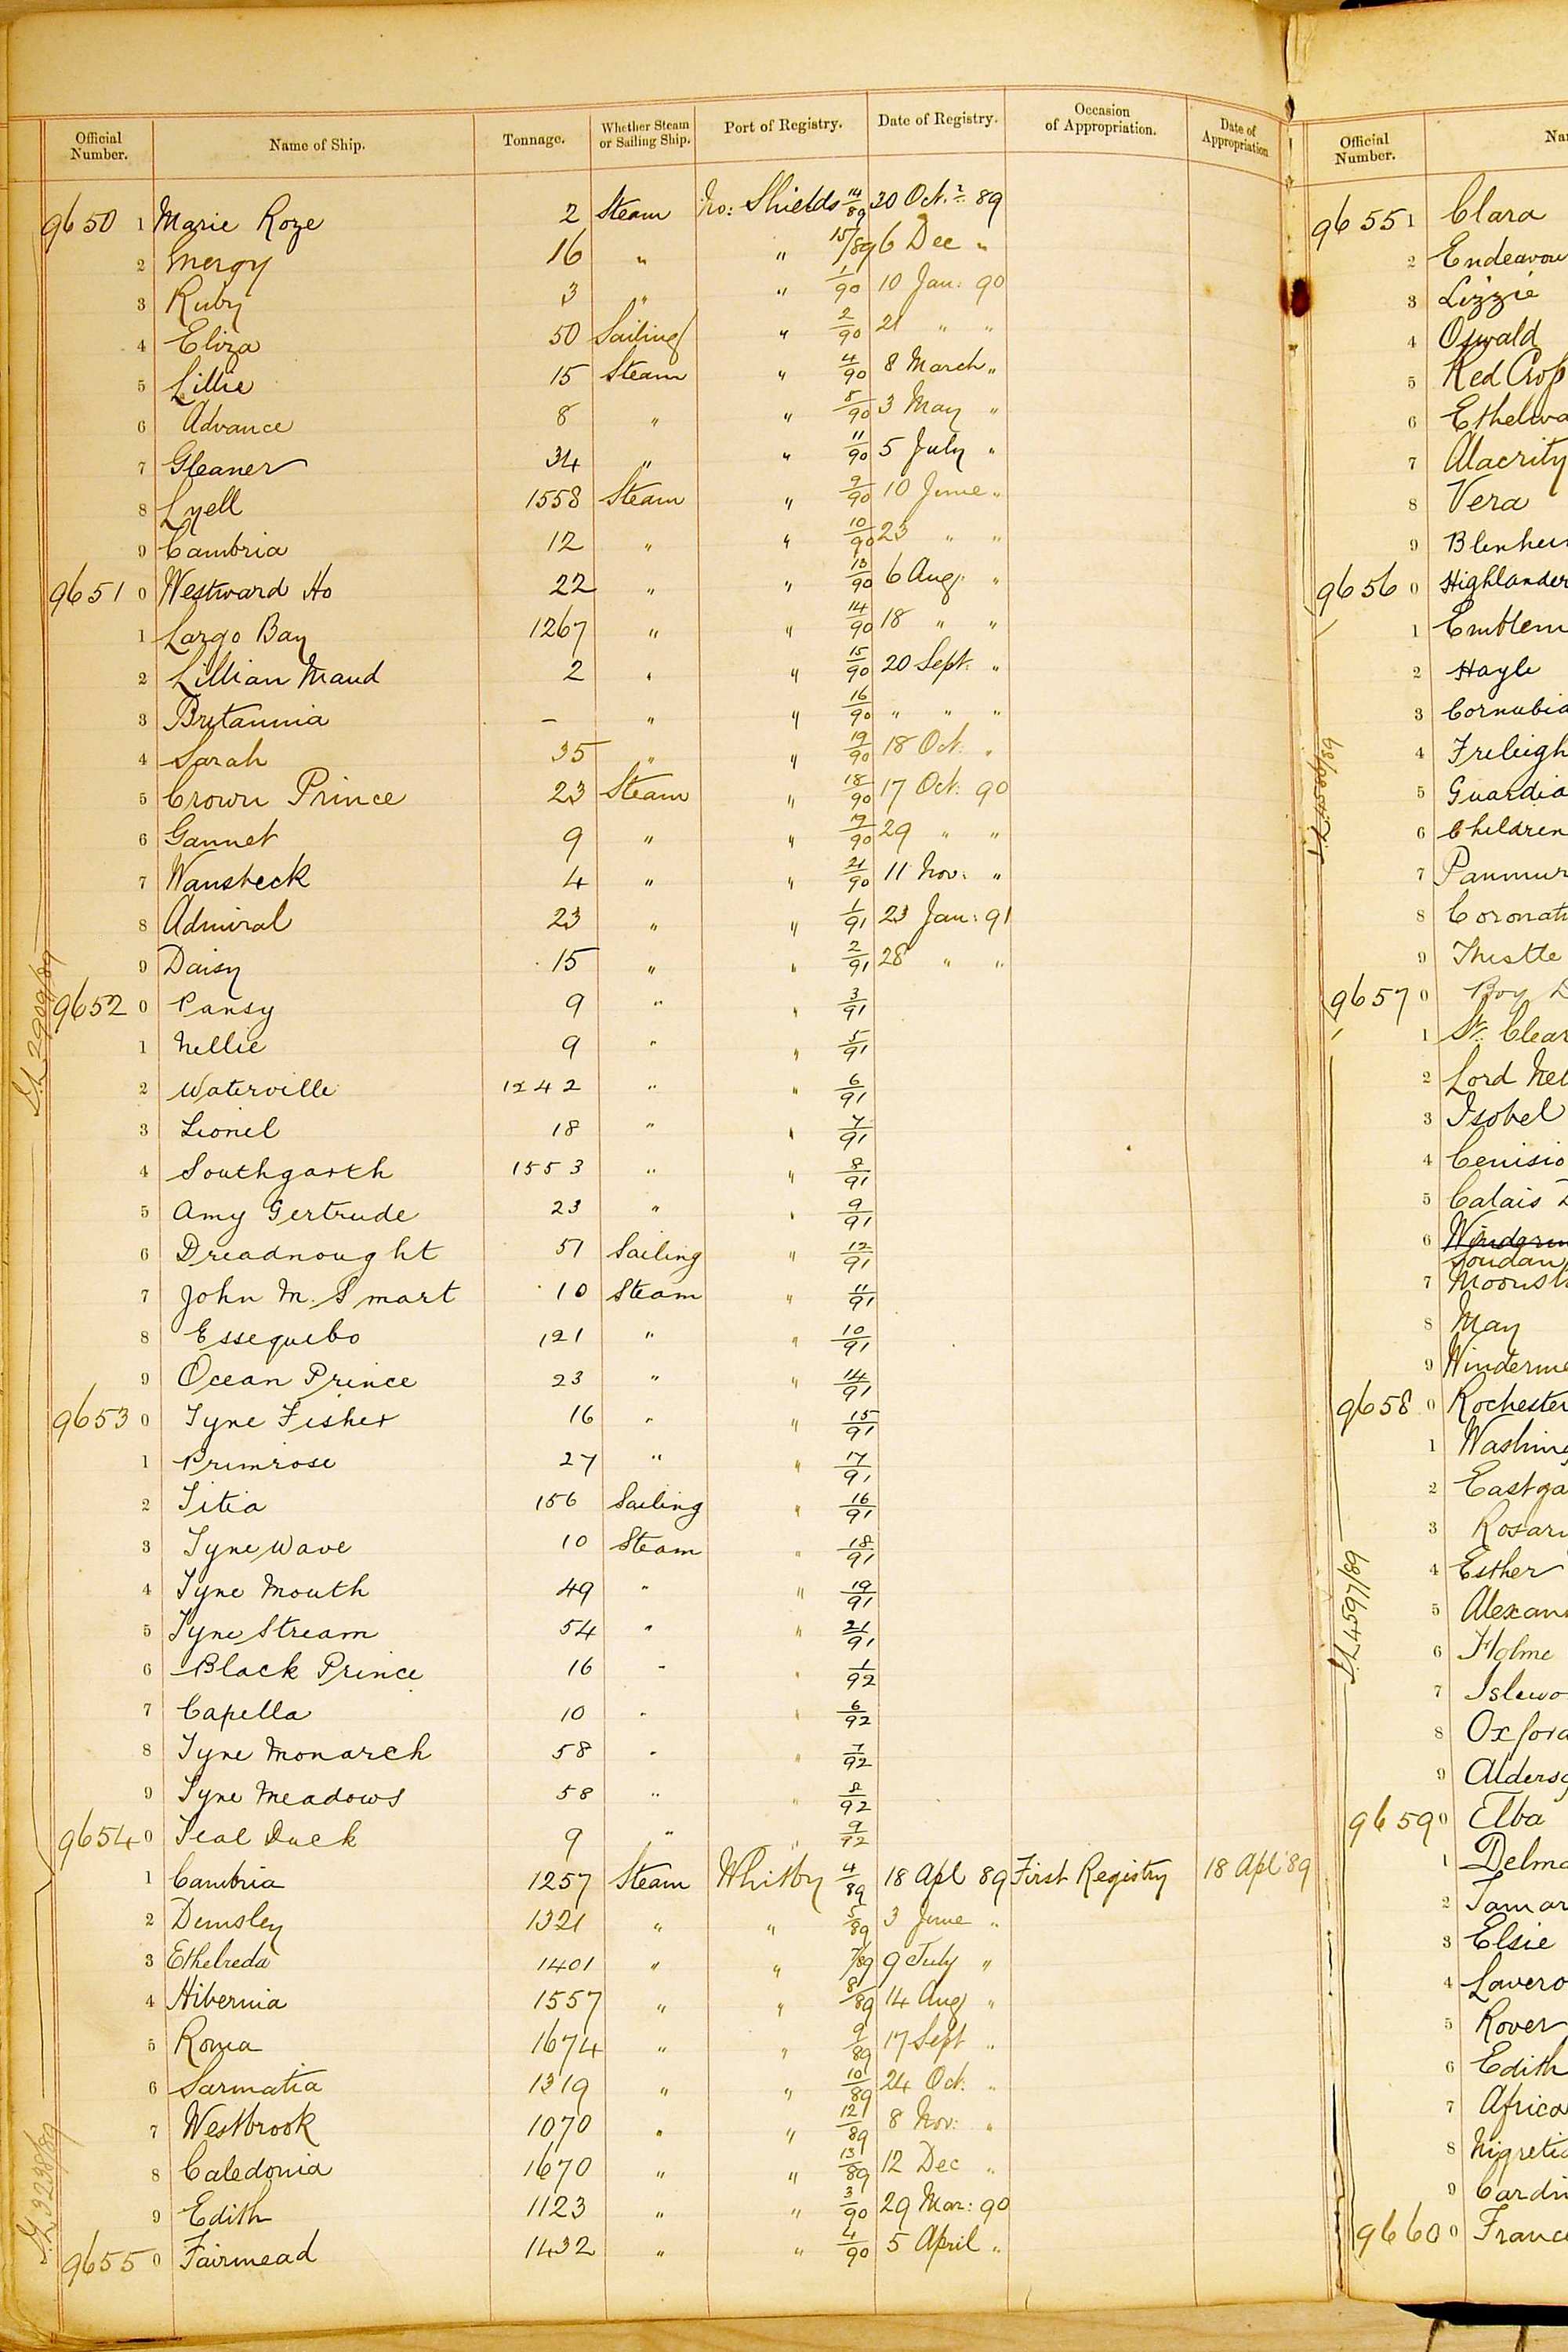 Official Number. Name of Ship. Tonnage. Whether Steam or Sailing Ship. Port of Registry. Date of Registry. Occasion of Appropriation. Date of Appropriation
9650 1 Marie Roze 2 Steam No: Shields 14/89 30 Oct. 89
2 Energy 16 " " 15/89 6 Dec "
3 Ruby 3 " " 1/90 10 Jan: 90
4 Eliza 50 Sailing " 2/90 21 " "
5 Lillie 15 Steam " 4/90 8 March "
6 Advance 8 " " 5/90 3 May "
7 Gleaner 34 " " 11/90 5 July "
8 Lyell 1558 Steam " 9/90 10 June "
9 Cambria 12 " " 10/90 23 " "
9651 0 Westward Ho 22 " " 13/90 6 Aug. "
1 Largo Bay 1267 " " 14/90 18 " "
2 Lillian Maud 2 " " 15/90 20 Sept. "
3 Britannia — " " 16/90 " " "
4 Sarah 35 " " 19/90 18 Oct. "
5 Crown Prince 23 Steam " 18/90 17 Oct: 90
6 Gannet 9 " " 19/90 29 " "
7 Wansbeck 4 " " 21/90 11 Nov: "
8 Admiral 23 " " 1/91 23 Jan: 91
9 Daisy 15 " " 2/91 28 " "
9652 0 Pansy 9 " " 3/91
1 Nellie 9 " " 5/91
2 Waterville 1242 " " 6/91
3 Lionel 18 " " 7/91
4 Southgarth 1553 " " 8/91
5 Amy Gertrude 23 " " 9/91
6 Dreadnought 51 Sailing " 12/91
7 John M. Smart 10 Steam " 11/91
8 Essequibo 121 " " 10/91
9 Ocean Prince 23 " " 14/91
9653 0 Tyne Fisher 16 " " 15/91
1 Primrose 27 " " 17/91
2 Titia 156 Sailing " 16/91
3 Tyne Wave 10 Steam " 18/91
4 Tyne Mouth 49 " " 19/91
5 Tyne Stream 54 " " 21/91
6 Black Prince 16 " " 1/92
7 Capella 10 " " 6/92
8 Tyne Monarch 58 " " 7/92
9 Tyne Meadows 58 " " 8/92
9654 0 Teal Duck 9 " " 9/92
1 Cambria 1257 Steam Whitby 4/89 18 Apl 89 First Registry 18 Apl '89
2 Demsley 1321 " " 5/89 3 June "
3 Ethelreda 1401 " " 7/89 9 July "
4 Hibernia 1557 " " 8/89 14 Aug "
5 Roma 1674 " " 9/89 17 Sept "
6 Sarmatia 1319 " " 10/89 24 Oct. "
7 Westbrook 1070 " " 12/89 8 Nov: "
8 Caledonia 1670 " " 13/89 12 Dec "
9 Edith 1123 " " 3/90 29 Mar: 90
9655 0 Fairmead 1432 " " 4/90 5 April "
2909/89
3238/89
Official Number.
9655 1 Clara
2 Endeavou
3 Lizzie
4 Oswald
5 Red Cross
6 Ethelwa
7 Alacrity
8 Vera
9 Blenhei
9656 0 Highlander
1 Emblem
2 Hayle
3 Cornubia
4 Freleigh
5 Guardia
6 Children
7 Panmur
8 Coronati
9 Thistle
9657 0 Boy D
1 St. Clear
2 Lord Nel
3 Isobel
4 Cenisio
5 Calais D
6 Soudan
7 Moonsh
8 May
9 Winderme
9658 0 Rochester
1 Washing
2 Eastga
3 Rosari
4 Esther
5 Alexan
6 Holme
7 Islewo
8 Oxford
9 Aldersg
9659 0 Elba
1 Delma
2 Tamar
3 Elsie
4 Lavero
5 Rover
6 Edith
7 Africa
8 Nigretia
9 Cardi
9660 0 France
4597/89